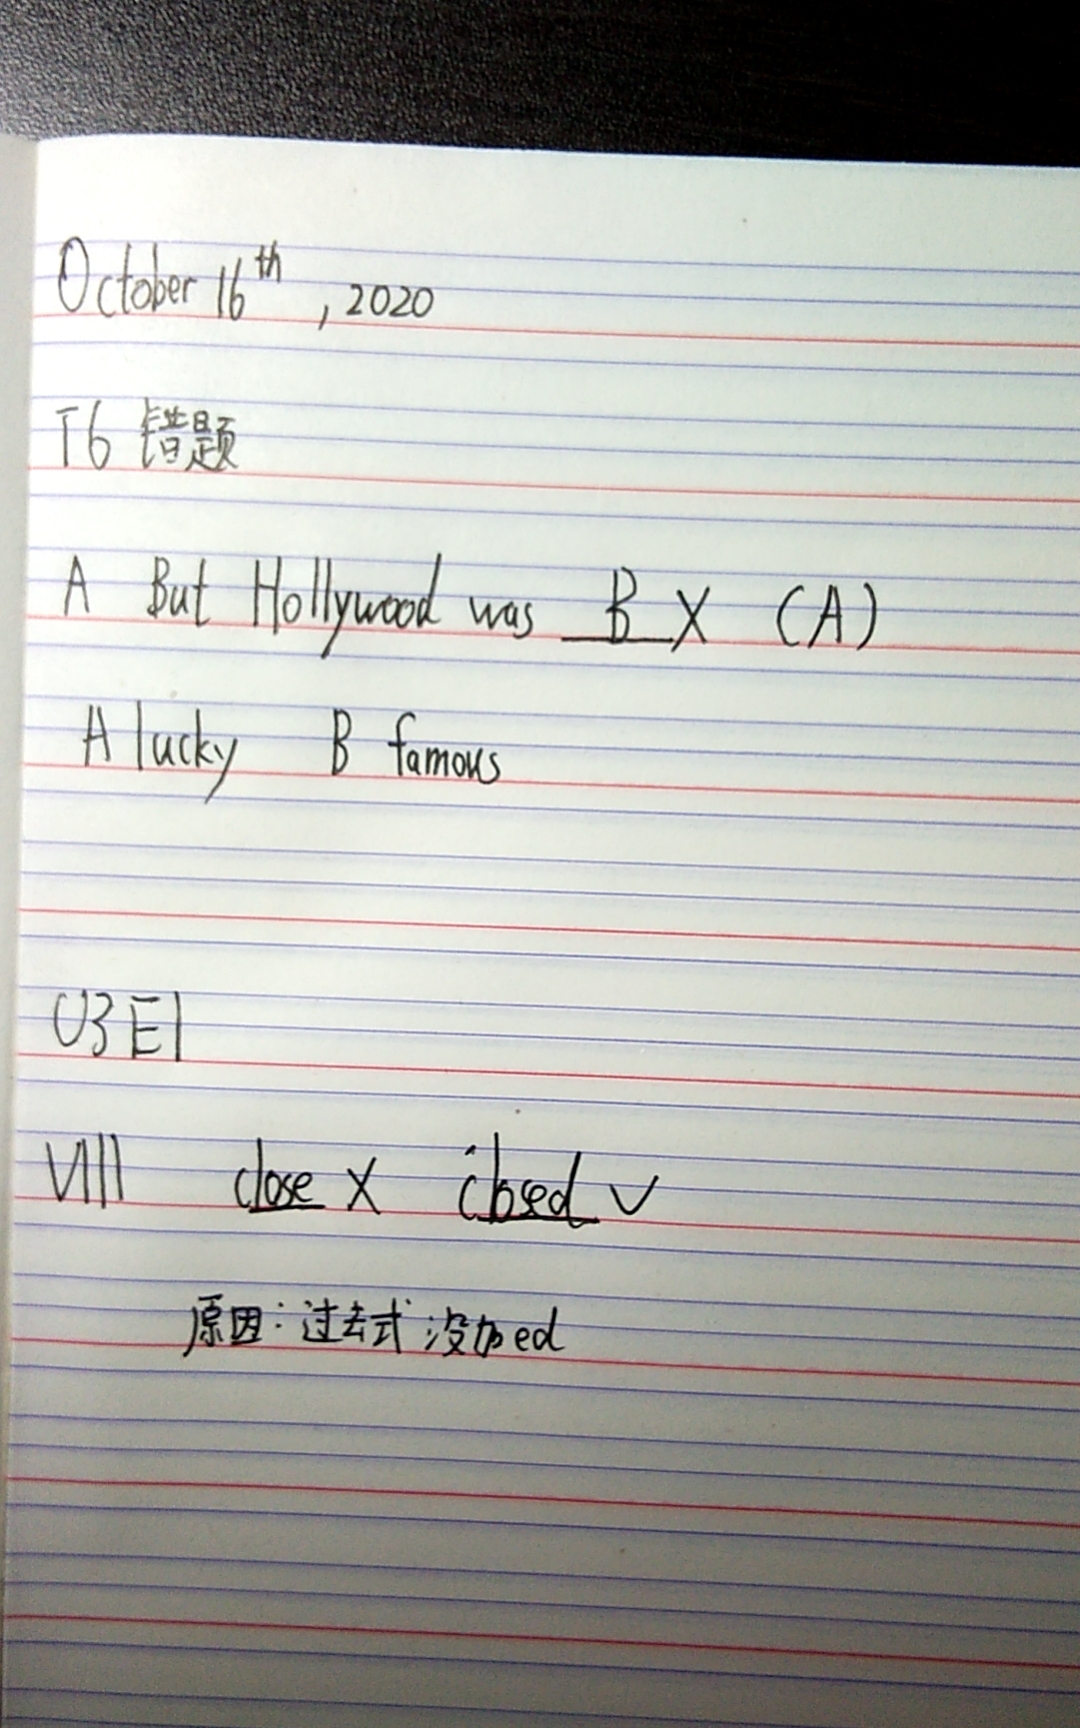 October 16th, 2020
T6 错题
A But Hollywood was B X (A)
A lucky B famous
U3 E1
VIII close X closed ✓
原因：过去式没加ed